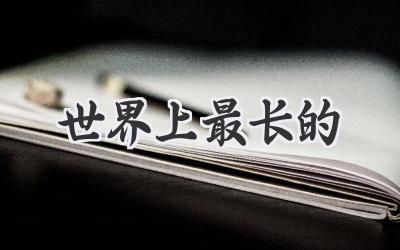 世界上最长的